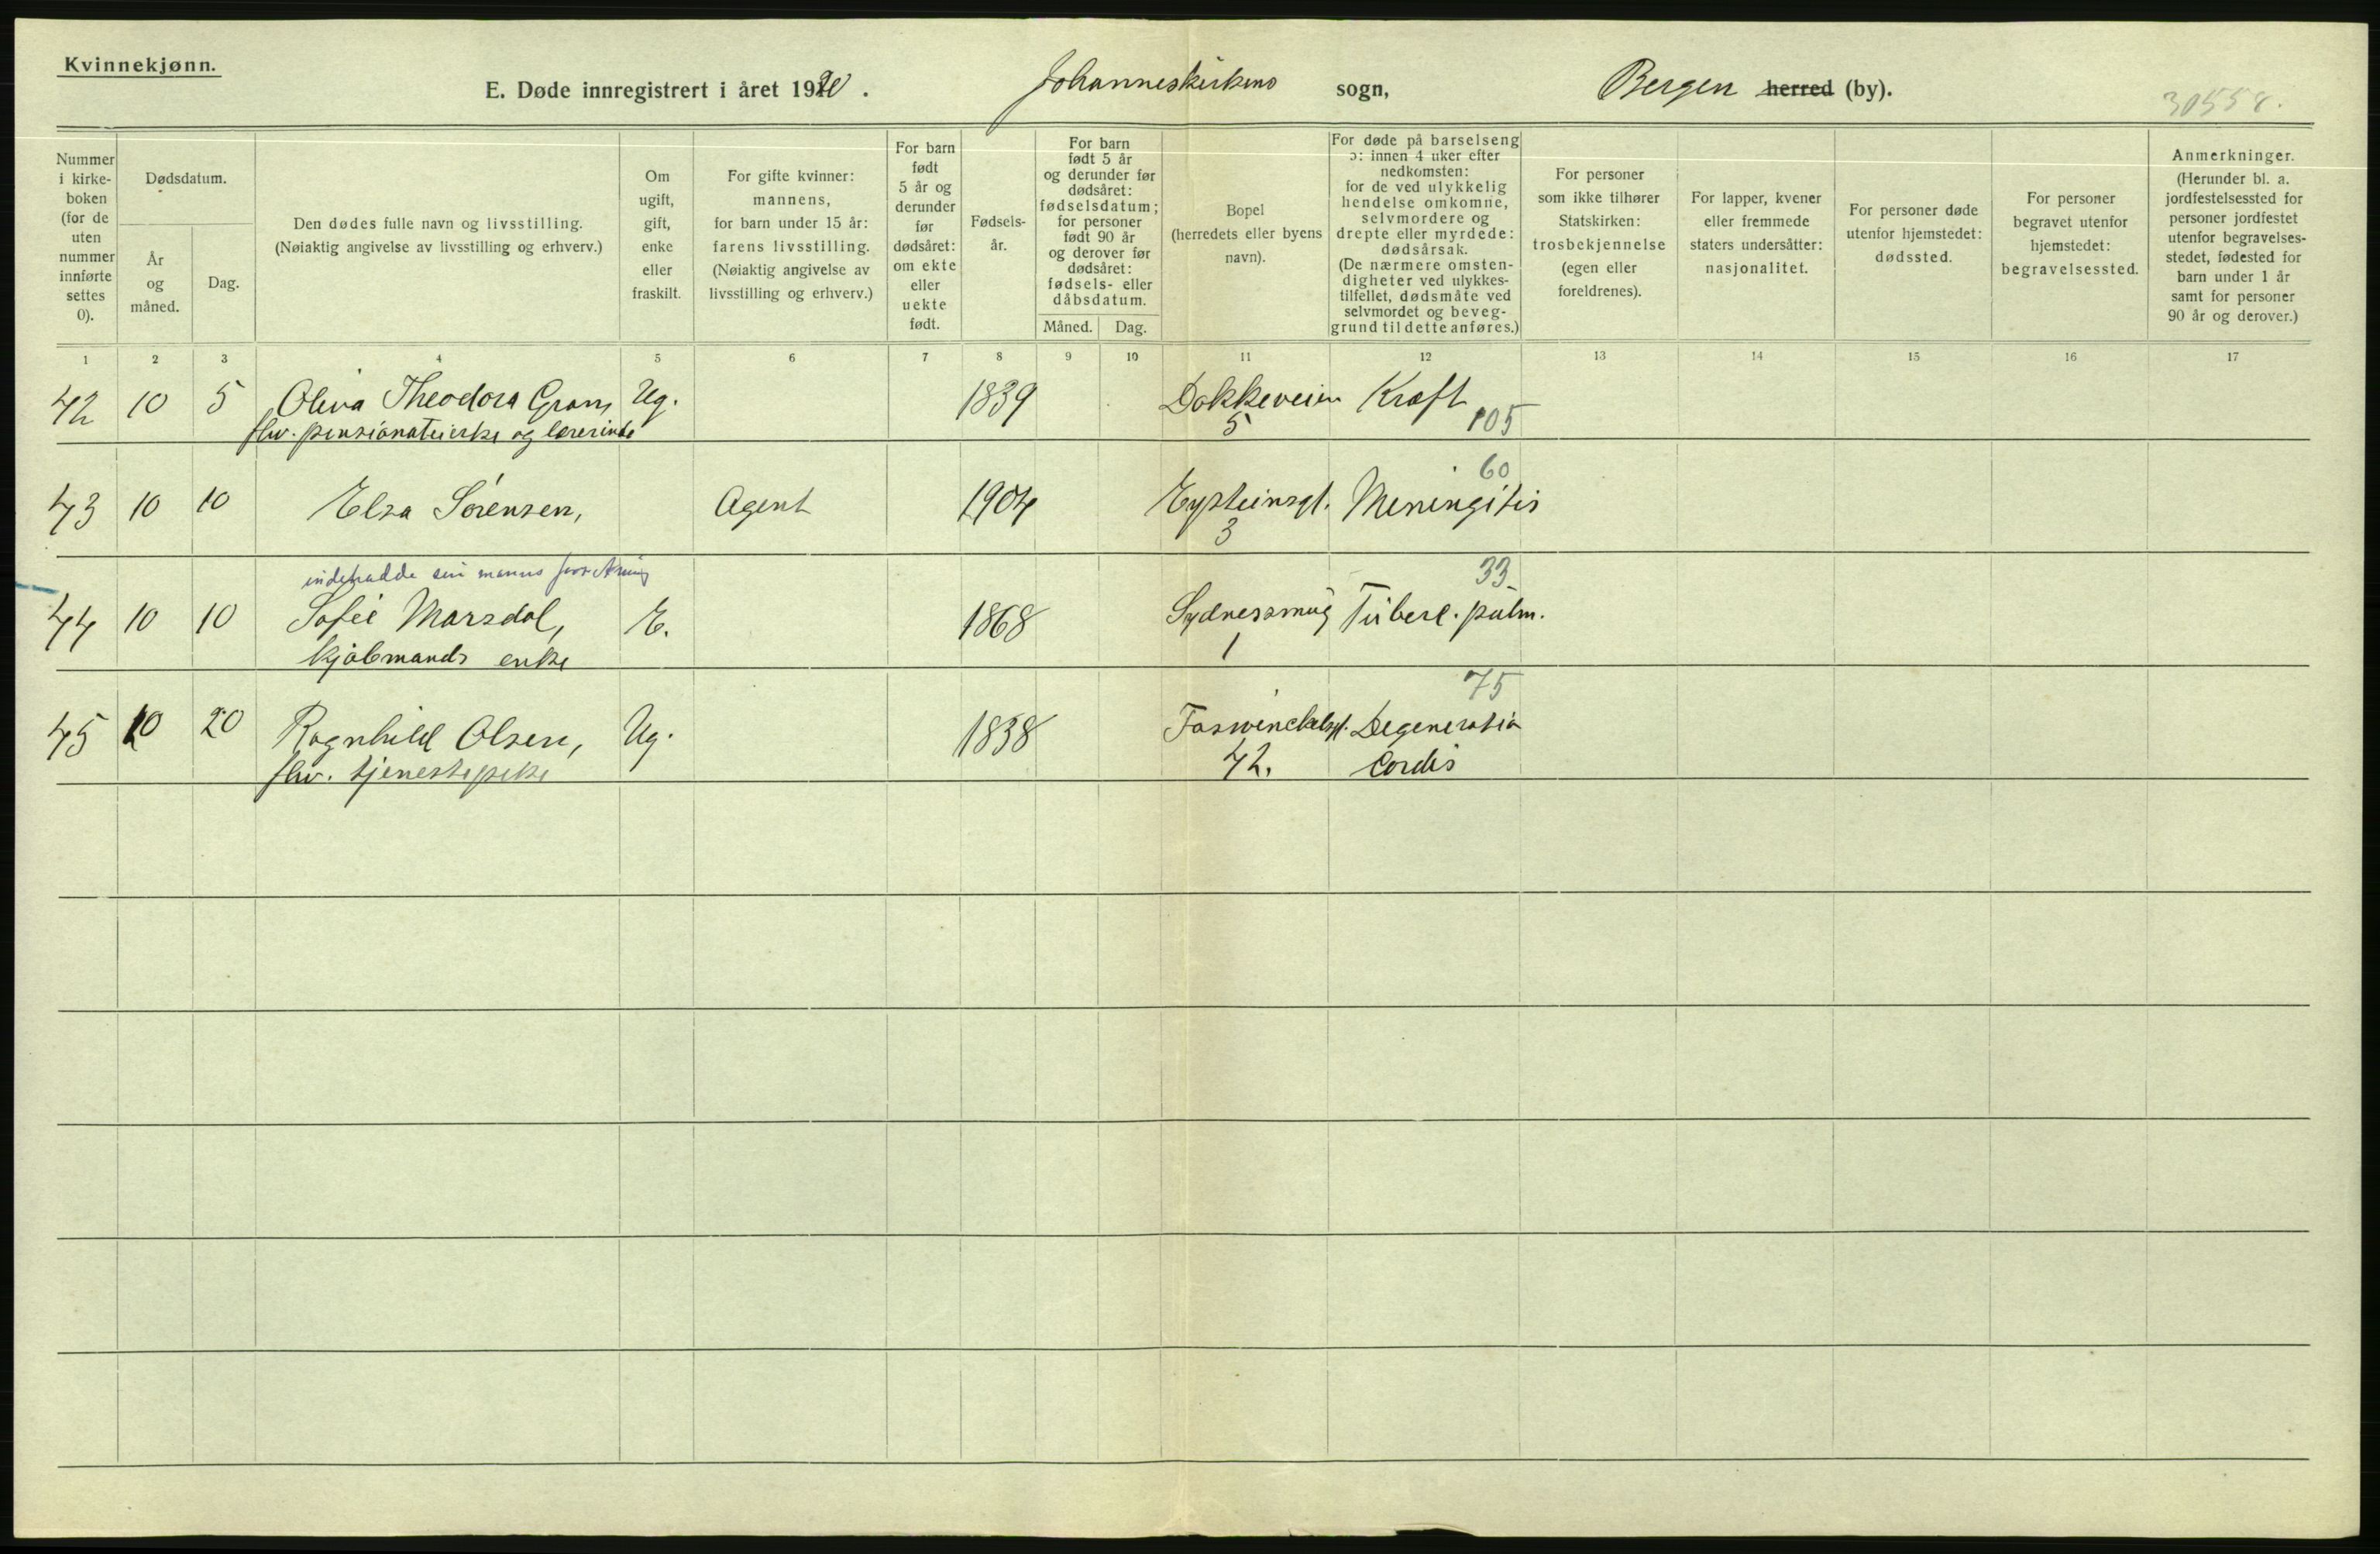 Kvinnekjønn.
E. Døde innregistrert i året 1920. Johanneskirkens sogn, Bergen herred (by). 30558.
Nummer i kirke- boken (for de uten nummer innførte settes 0).
Dødsdatum.
År og måned.
Dag.
Den dødes fulle navn og livsstilling.
(Nøiaktig angivelse av livsstilling og erhverv.)
Om ugift, gift, enke eller fraskilt.
For gifte kvinner: mannens, for barn under 15 år: farens livsstilling. (Nøiaktig angivelse av livsstilling og erhverv.)
For barn født 5 år og derunder før dødsåret: om ekte eller uekte født.
Fødsels- år.
For barn født 5 år og derunder før dødsåret: fødselsdatum; for personer født 90 år og derover før dødsåret: fødsels- eller dåbsdatum.
Måned. Dag.
Bopel (herredets eller byens navn).
For døde på barselseng ɔ: innen 4 uker efter nedkomsten: for de ved ulykkelig hendelse omkomne, selvmordere og drepte eller myrdede: dødsårsak. (De nærmere omsten- digheter ved ulykkes- tilfellet, dødsmåte ved selvmordet og beveg- grund til dette anføres.)
For personer som ikke tilhører Statskirken: trosbekjennelse (egen eller foreldrenes).
For lapper, kvener eller fremmede staters undersåtter: nasjonalitet.
For personer døde utenfor hjemstedet: dødssted.
For personer begravet utenfor hjemstedet: begravelsessted.
Anmerkninger. (Herunder bl. a. jordfestelsessted for personer jordfestet utenfor begravelses- stedet, fødested for barn under 1 år samt for personer 90 år og derover.)
1 2 3 4 5 6 7 8 9 10 11 12 13 14 15 16 17
42 10 5 Oliva Theodora Gran, Ug. 1839 Dokkeveien Kræft
fhv. pensionateierske og lærerinde 5 105
60
43 10 10 Elsa Sørensen, Agent 1904 Eysteinsgt. Meningitis
3
indehadde sin manns forretning 33
44 10 10 Sofie Marsdal, E. 1868 Sydnessmug Tuberc. pulm.
kjøbmands enke 1
75
45 10 20 Ragnhild Olsen, Ug. 1838 Foswinckelsgt. Degeneratio
fhv. tjenestepike 42. Cordis